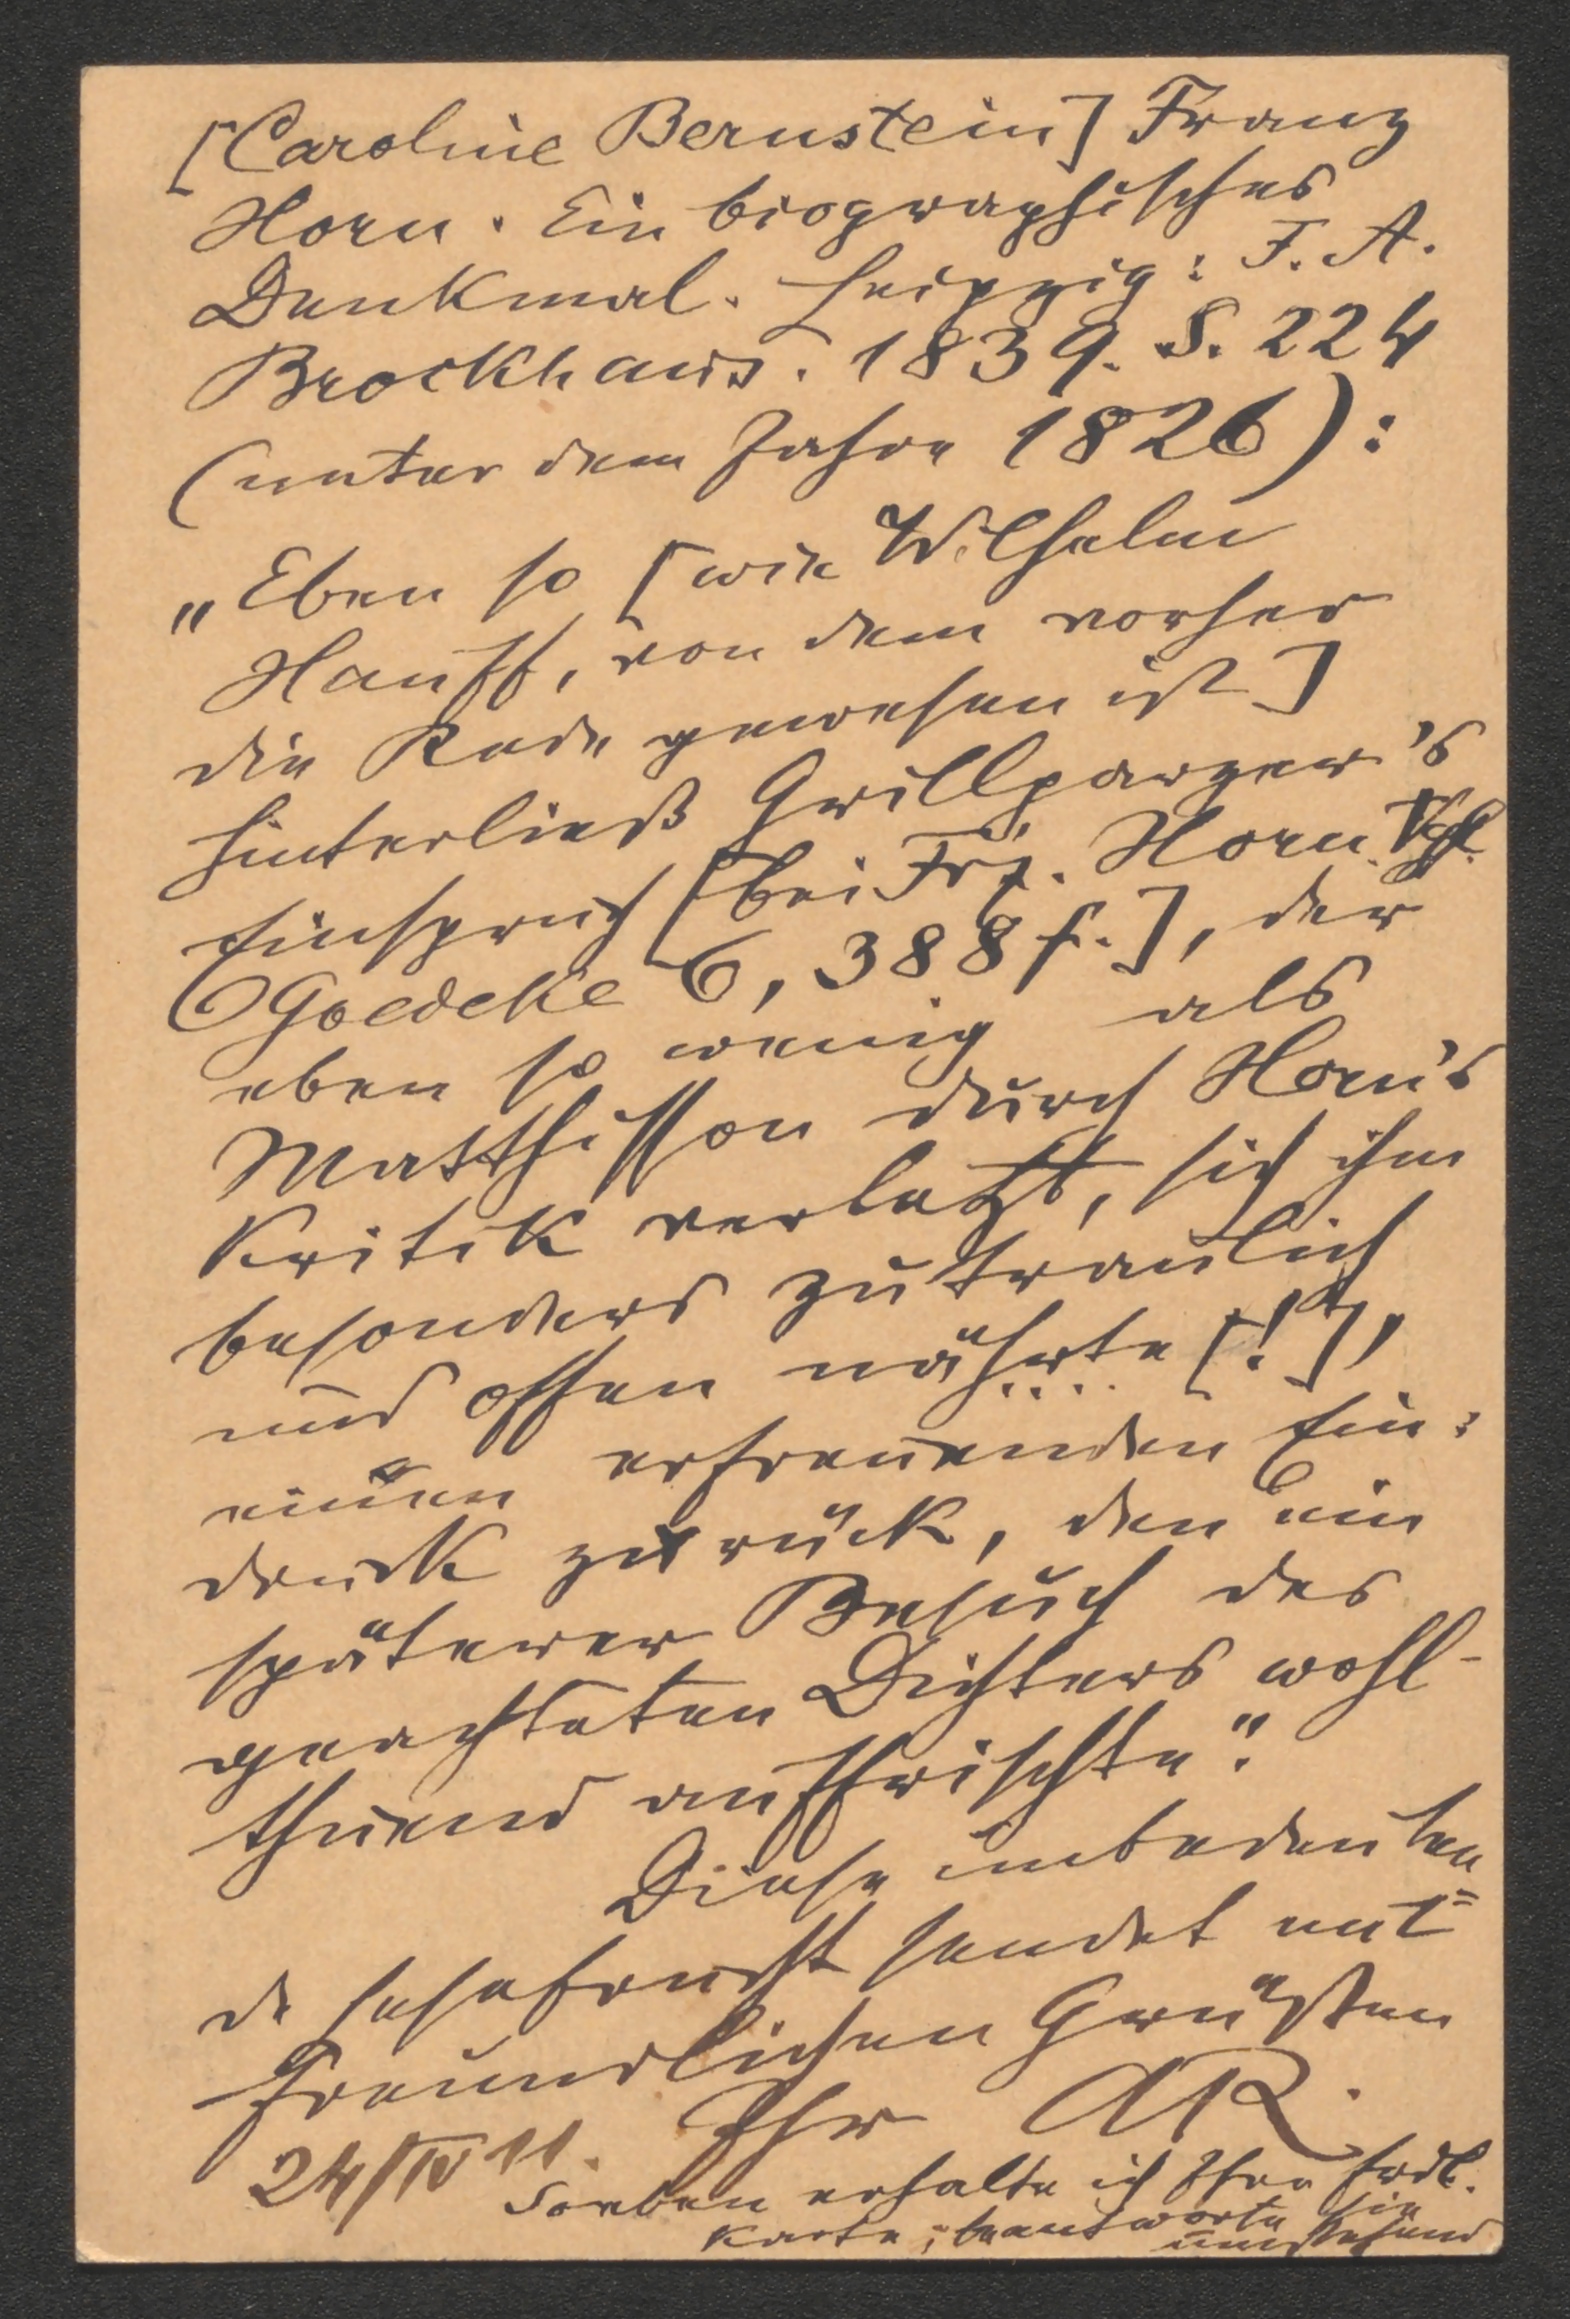 [Caroline Bernstein] Franz
Horn. Ein biographisches
Denkmal. Leipzig: F. A.
Brockhaus. 1839. S. 224
(unter dem Jahre 1826):
„Eben so [wie Wilhelm
Hauff, von dem vorher
die Rede gewesen ist]
hinterließ Grillparzer's
Einspruch [bei Frz. Horn. Vgl.
Goedeke 6, 388 f.], der
eben so wenig als
Matthisson durch Horn's
Kritik verletzt, sich ihm
besonders zutraulich
und offen nährte [!],
einen erfreuenden Ein-
druck zurück, den ein
späterer Besuch des
geachteten Dichters wohl-
thuend auffrischte“.
Diese unbedeuten-
de Lesefrucht sendet mit
freundlichen Grüßen
Ihr AR.
24/IV 11.
Soeben erhalte ich Ihre frdl.
Karte; beantworte sie
umstehend